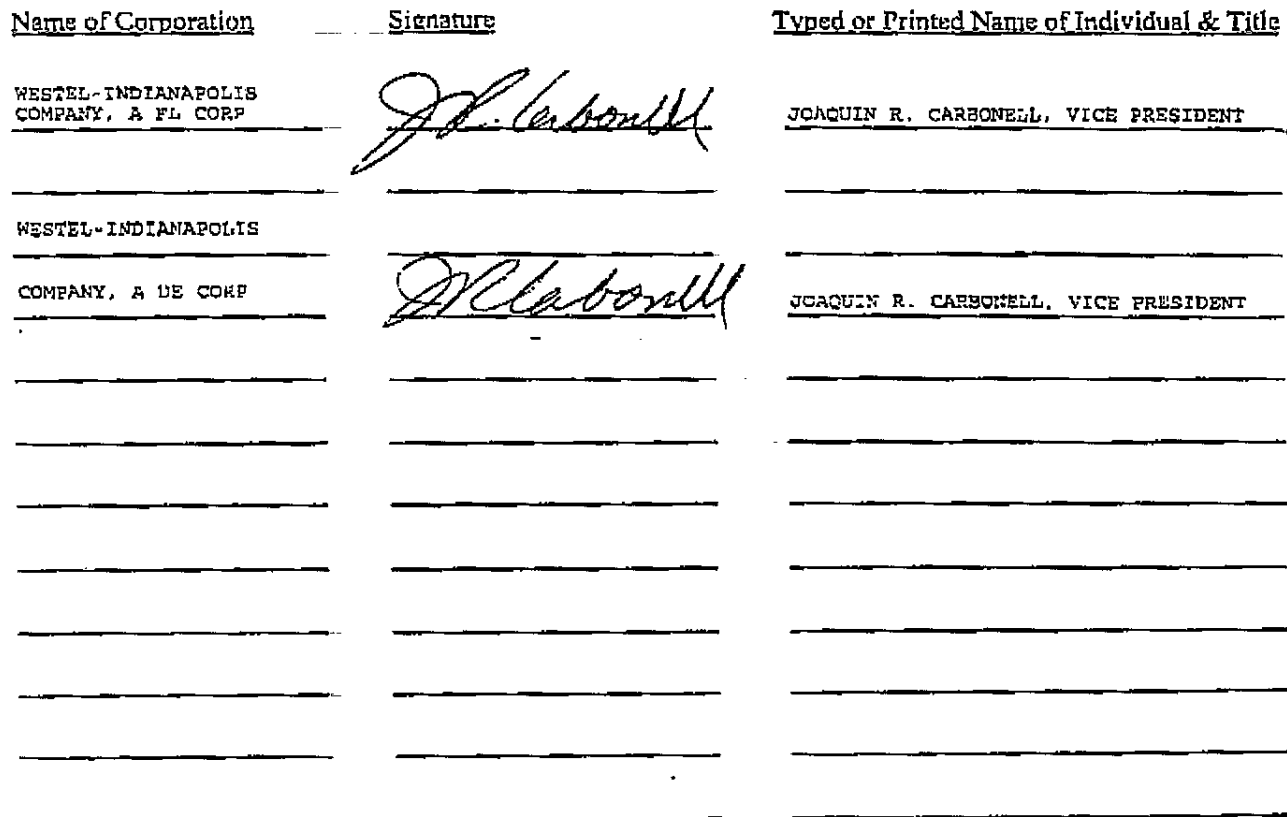 Name of Corporation Signature Typed or Printed Name of Individual & Title
WESTEL-INDIANAPOLIS
COMPANY, A FL CORP J R. Carbonell JOAQUIN R. CARBONELL, VICE PRESIDENT
WESTEL-INDIANAPOLIS
COMPANY, A DE CORP JR Carbonell JOAQUIN R. CARBONELL, VICE PRESIDENT